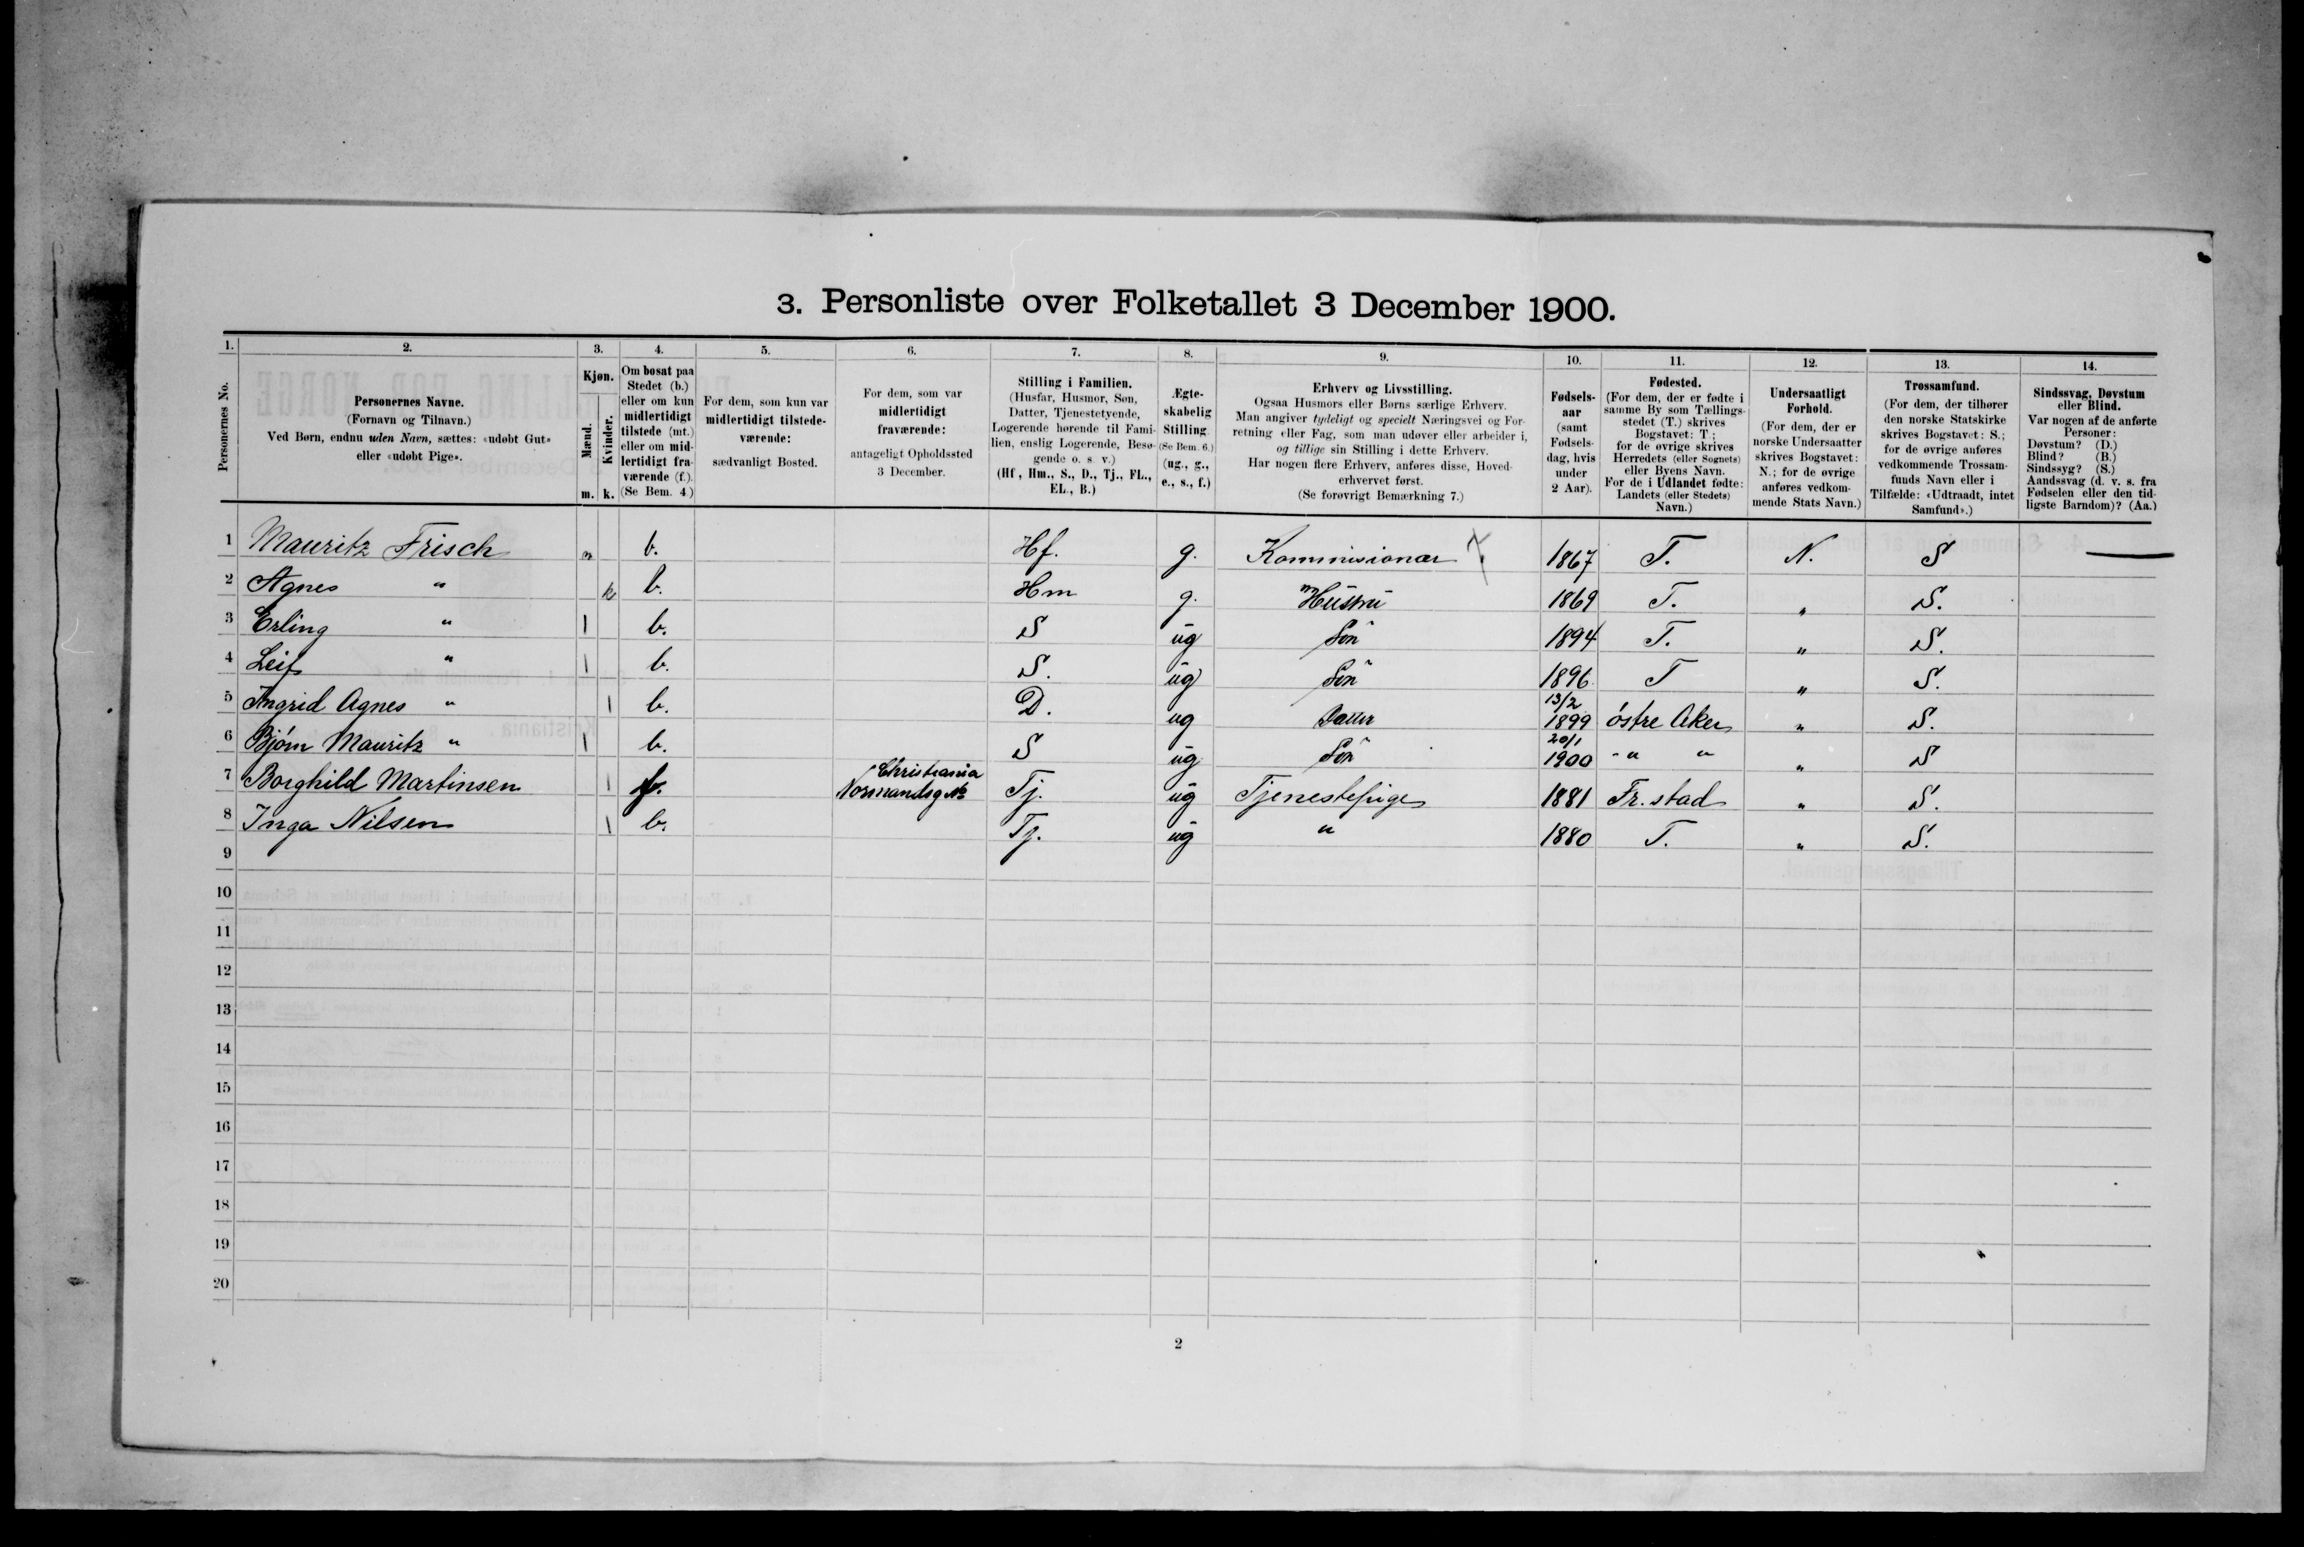 3. Personliste over Folketallet 3 December 1900.
1. 2. 3. 4. 5. 6. 7. 8. 9. 10. 11. 12. 13. 14.
Personernes No.
Personernes Navne.
(Fornavn og Tilnavn.)
Ved Børn, endnu uden Navn, sættes: «udøbt Gut»
eller «udøbt Pige».
Kjøn.
Mænd.
Kvinder.
m. k.
Om bosat paa
Stedet (b.)
eller om kun
midlertidigt
tilstede (mt.)
eller om mid-
lertidigt fra-
værende (f.).
(Se Bem. 4.)
For dem, som kun var
midlertidigt tilstede-
værende:
sædvanligt Bosted.
For dem, som var
midlertidigt
fraværende:
antageligt Opholdssted
3 December.
Stilling i Familien.
(Husfar, Husmor, Søn,
Datter, Tjenestetyende,
Logerende hørende til Fami-
lien, enslig Logerende, Besø-
gende o. s. v.)
(Hf., Hm., S., D., Tj., FL.,
EL., B.)
Ægte-
skabelig
Stilling.
(Se Bem. 6.)
(ug., g.,
e., s., f.)
Erhverv og Livsstilling.
Ogsaa Husmors eller Børns særlige Erhverv.
Man angiver tydeligt og specielt Næringsvei og For-
retning eller Fag, som man udøver eller arbeider i,
og tillige sin Stilling i dette Erhverv.
Har nogen flere Erhverv, anføres disse, Hoved-
erhvervet først.
(Se forøvrigt Bemærkning 7.)
Fødsels-
aar
(samt
Fødsels-
dag, hvis
under
2 Aar).
Fødested.
(For dem, der er fødte i
samme By som Tællings-
stedet (T.) skrives
Bogstavet: T.;
for de øvrige skrives
Herredets (eller Sognets)
eller Byens Navn.
For de i Udlandet fødte:
Landets (eller Stedets)
Navn.)
Undersaatligt
Forhold.
(For dem, der er
norske Undersaatter
skrives Bogstavet:
N.; for de øvrige
anføres vedkom-
mende Stats Navn.)
Trossamfund.
(For dem, der tilhører
den norske Statskirke
skrives Bogstavet: S.;
for de øvrige anføres
vedkommende Trossam-
funds Navn eller i
Tilfælde: «Udtraadt, intet
Samfund».)
Sindssvag, Døvstum
eller Blind.
Var nogen af de anførte
Personer:
Døvstum? (D.)
Blind? (B.)
Sindssyg? (S.)
Aandssvag (d. v. s. fra
Fødselen eller den tid-
ligste Barndom)? (Aa.)
1 Mauritz Frisch m b. Hf. g. Kommisionær 1867 T. N. S
2 Agnes " k b. Hm g. Hustru 1869 T. " S.
3 Erling " 1 b. S ug Søn 1894 T. " S.
4 Leif " 1 b. S. ug Søn 1896 T " S.
5 Ingrid Agnes " 1 b. D. ug Datter 13/2 1899 östre Aker " S.
6 Bjørn Mauritz " 1 b. S ug Søn 20/1 1900 " " " S
7 Borghild Martinsen 1 f. Christiania Normandsg No Tj. ug Tjenestepige 1881 Fr.stad " S.
8 Inga Nilsen 1 b. Tj. ug " 1880 T. " S.
9
10
11
12
13
14
15
16
17
18
19
20
2